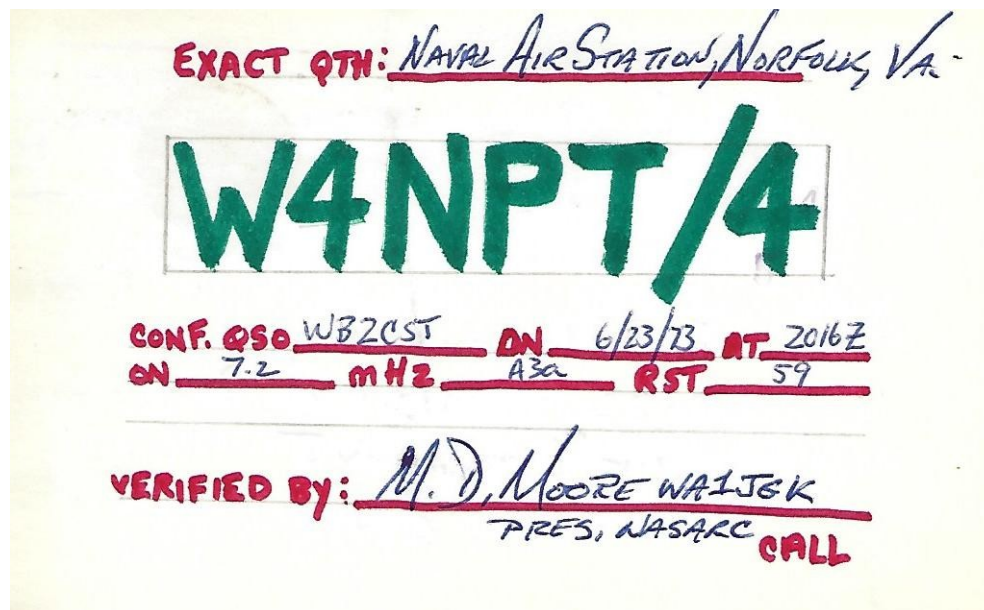 EXACT QTH: NAVAL AIR STATION, NORFOLK, VA.
W4NPT/4
CONF. QSO WB2CST ON 6/23/73 AT 2016Z
ON 7.2 mHz A3a RST 59
VERIFIED BY: M. D. MOORE WA1JGK
PRES, NASARC
CALL